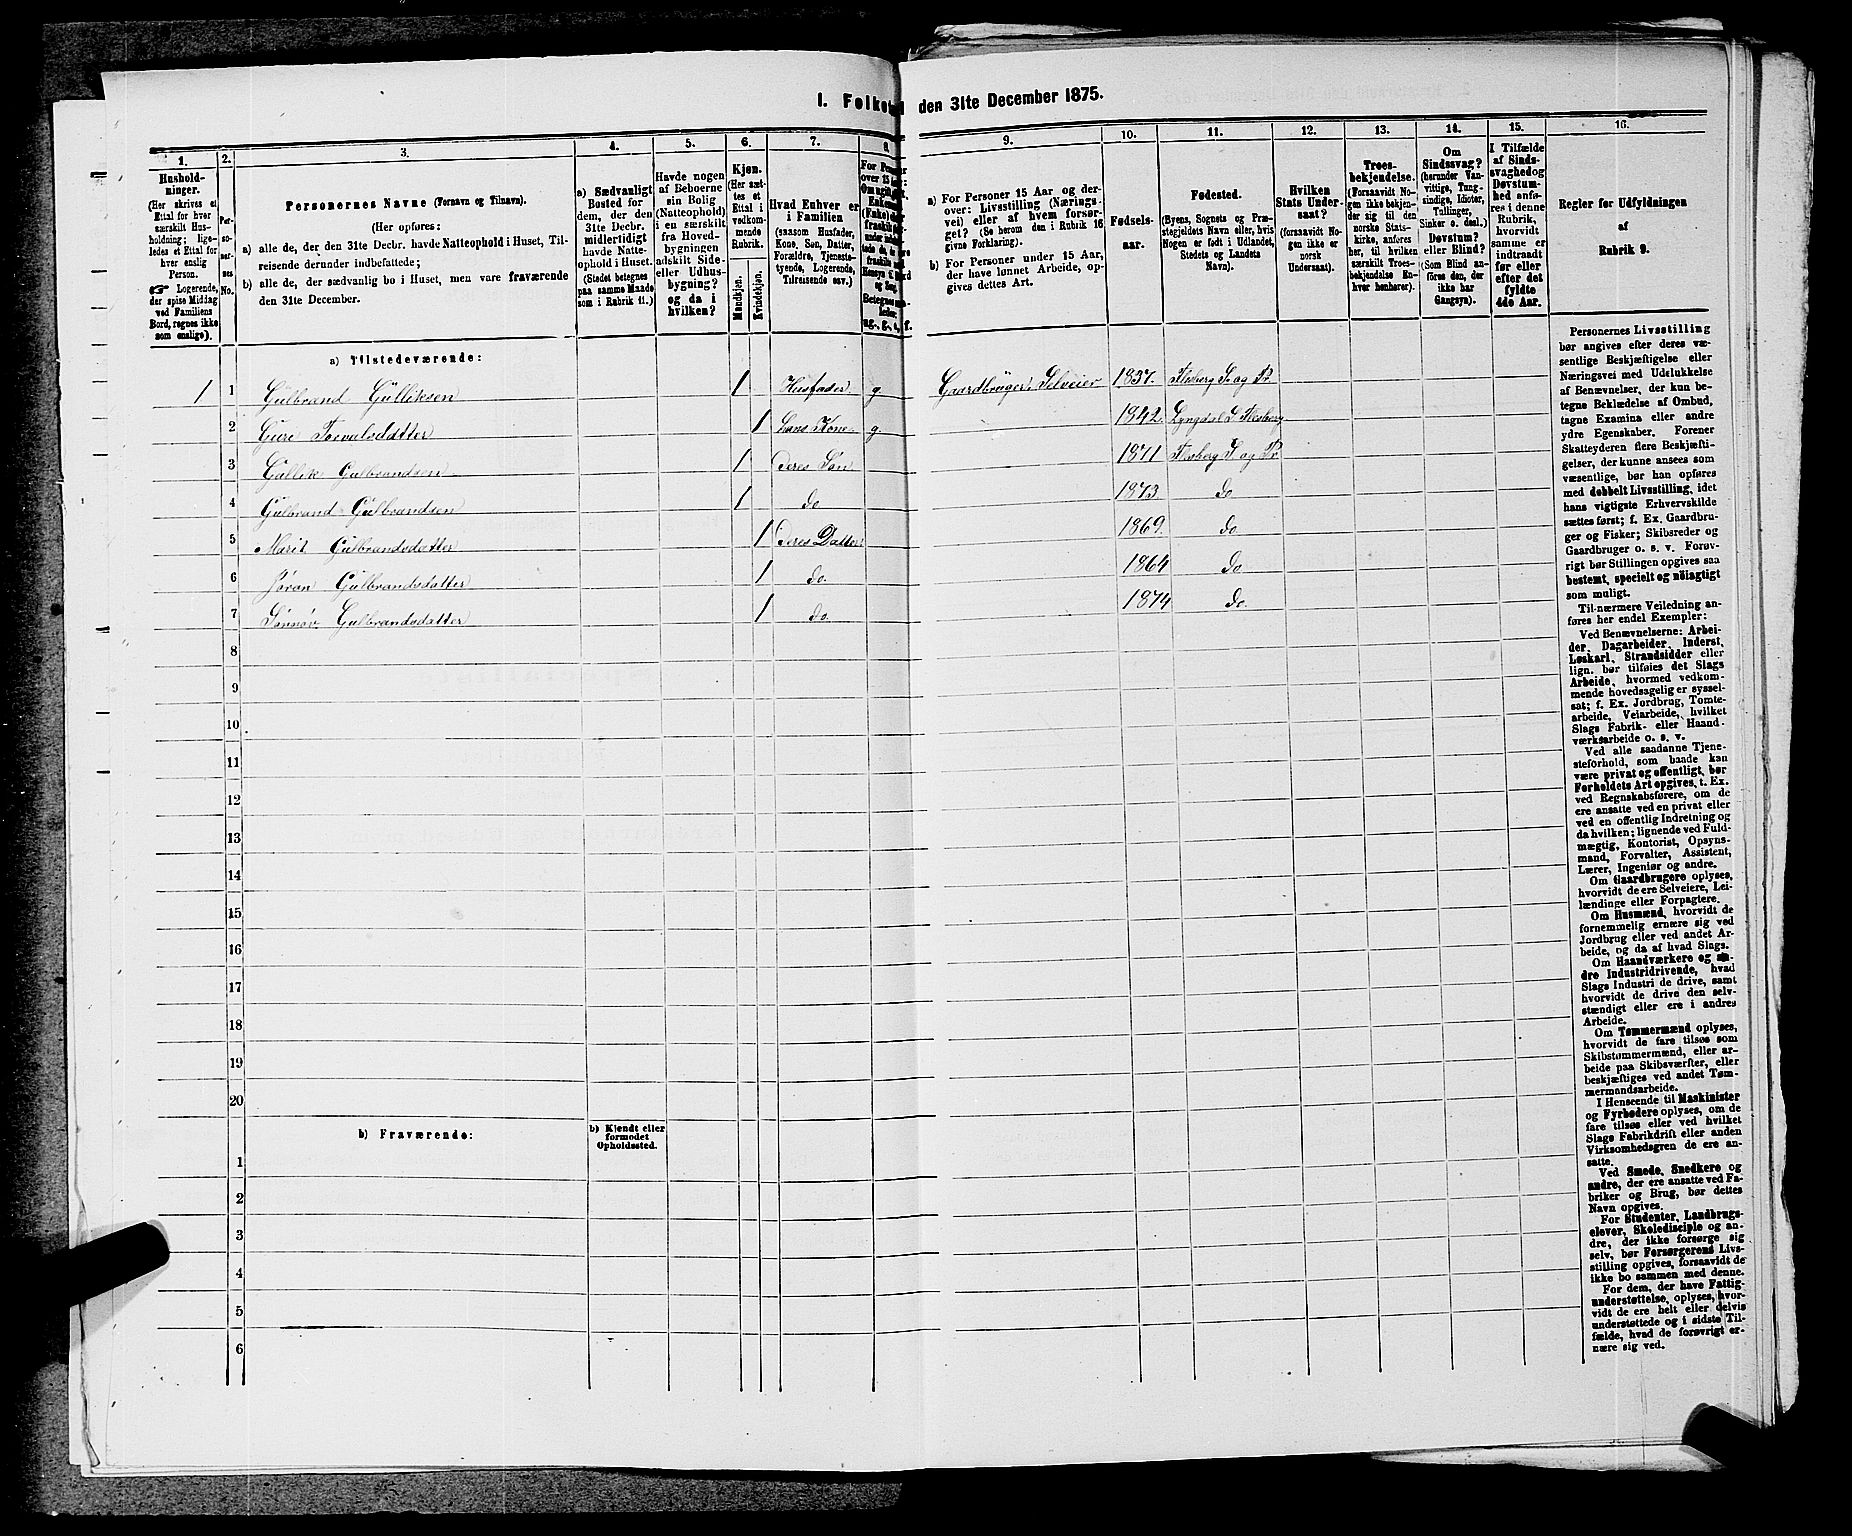 I. Folket den 31te December 1875.
1. 2. 3. 4. 5. 6. 7. 8. 9. 10. 11. 12. 13. 14. 15. 16.
Hushold-
ninger.
(Her skrives et
Ettal for hver
særskilt Hus-
holdning; lige-
ledes et Ettal for
hver enslig
Person.
☞ Logerende,
der spise Middag
ved Familiens
Bord, regnes ikke
som enslige).
Per-
so-
ner-
nes
No.
Personernes Navne (Fornavn og Tilnavn).
(Her opføres:
a) alle de, der den 31te Decbr. havde Natteophold i Huset, Til-
reisende derunder indbefattede;
b) alle de, der sædvanlig bo i Huset, men vare fraværende
den 31te December.
a) Sædvanligt
Bosted for
dem, der den
31te Decbr.
midlertidigt
havde Natte-
ophold i Huset.
(Stedet betegnes
paa samme Maade
som i Rubrik 11.)
Havde nogen
af Beboerne
sin Bolig
(Natteophold)
i en særskilt
fra Hoved-
bygningen
adskilt Side-
eller Udhus-
bygning?
og da i
hvilken?
Kjøn.
(Her sæt-
tes et
Ettal i
vedkom-
mende
Rubrik.
Mandkjøn.
Kvindekjøn.
Hvad Enhver er
i Familien
(saasom Husfader,
Kone, Søn, Datter,
Forældre, Tjeneste-
tyende, Logerende,
Tilreisende osv.)
For Per
over 15
Om ugift,
Enkem
(Fake)
fraskilt
ug., g., e., f.
a) For Personer 15 Aar og der-
over: Livsstilling (Nærings-
vei) eller af hvem forsør-
get? (Se herom den i Rubrik 16
givne Forklaring).
b) For Personer under 15 Aar,
der have lønnet Arbeide, op-
gives dettes Art.
Fødsels-
aar.
Fødested.
(Byens, Sognets og Præ-
stegjeldets Navn eller, hvis
Nogen er født i Udlandet,
Stedets og Landets
Navn).
Hvilken
Stats Under-
saat?
(forsaavidt No-
gen ikke er
norsk
Undersaat).
Troes-
bekjendelse.
(Forsaavidt No-
gen ikke bekjen-
der sig til den
norske Stats-
kirke, anføres
her, til hvilken
særskilt Troes-
bekjendelse En-
hver henhører).
Om
Sindssvag?
(herunder Van-
vittige, Tung-
sindige, Idioter,
Tullinger,
Sinker o. desl.)
Døvstum?
eller Blind?
(Som Blind an-
føres den, der
ikke har
Gangsyn).
I Tilfælde
af Sinds-
svaghed og
Døvstum-
hed anfø-
res i denne
Rubrik,
hvorvidt
samme er
indtraadt
før eller
efter det
fyldte
4de Aar.
Regler for Udfyldningen
af
Rubrik 9.
a) Tilstedeværende:
1 1 Gulbrand Gulliksen 1 Husfader g Gaardbruger, Selveier 1837. Flesberg S. og Pr.
2 Guri Torvalsdatter 1 hans Kone g. 1842. Lyngdal S. Flesberg
3 Gullik Gulbrandsen 1 Deres Søn 1871 Flesberg S. og Pr.
4 Gulbrand Gulbrandsen 1 do 1873 do
5 Marit Gulbrandsdatter 1 Deres Datter 1869. do
6 Jøran Gulbrandsdatter 1 do. 1864 do
7 Sønnøv Gulbrandsdatter 1 do. 1874 do.
8
9
10
11
12
13
14
15
16
17
18
19
20
b) Fraværende:
b) Kjendt eller
formodet
Opholdssted.
1
2
3
4
5
6
Personernes Livsstilling
bør angives efter deres væ-
sentlige Beskjæftigelse eller
Næringsvei med Udelukkelse
af Benævnelser, der kun be-
tegne Beklædelse af Ombud,
tagne Examina eller andre
ydre Egenskaber. Forener
Skatteyderen flere Beskjæfti-
gelser, der kunne ansees som
væsentlige, bør han opføres
med dobbelt Livsstilling, idet
hans vigtigste Erhvervskilde
sættes først; f. Ex. Gaardbru-
ger og Fisker; Skibsreder og
Gaardbruger o. s. v. Forøv-
rigt bør Stillingen opgives saa
bestemt, specielt og nøiagtigt
som muligt.
Til nærmere Veiledning an-
føres her endel Exempler:
Ved Benævnelserne: Arbei-
der, Dagarbeider, Inderst,
Løskarl, Strandsidder eller
lign. bør tilføies det Slags
Arbeide, hvormed vedkom-
mende hovedsagelig er syssel-
sat; f. Ex. Jordbrug, Tomte-
arbeide, Veiarbeide, hvilket
Slags Fabrik- eller Haand-
værksarbeide o. s. v.
Ved alle saadanne Tjene-
steforhold, som baade kan
være privat og offentligt, bør
Forholdets Art opgives, t. Ex.
ved Regnskabsførere, om de
ere ansatte ved en privat eller
ved en offentlig Indretning og
da hvilken; lignende ved Fuld-
mægtig, Kontorist, Opsyns-
mand, Forvalter, Assistent,
Lærer, Ingeniør og andre.
Om Gaardbrugere oplyses,
hvorvidt de ere Selveiere, Lei-
lændinge eller Forpagtere.
Om Husmænd, hvorvidt de
fornemmelig ernære sig ved
Jordbrug eller ved andet Ar-
beide, og da af hvad Slags.
Om Haandværkere og an-
dre Industridrivende, hvad
Slags Industri de drive, samt
hvorvidt de drive den selv-
stændigt eller ere i andres
Arbeide.
Om Tømmermænd oplyses,
hvorvidt de fare tilsøs som
Skibstømmermænd, eller ar-
beide paa Skibsværfter, eller
beskjæftiges ved andet Tøm-
mermandsarbeide.
I Henseende til Maskinister
og Fyrbødere oplyses, om de
fare tilsøs eller ved hvilket
Slags Fabrikdrift eller anden
Virksomhedsgren de ere an-
satte.
Ved Smede, Snedkere og
andre, der ere ansatte ved Fa-
briker og Brug, bør dettes
Navn opgives.
For Studenter, Landbrugs-
elever, Skoledisciple og an-
dre, der ikke forsørge sig
selv, bør Forsørgerens Livs-
stilling opgives, forsaavidt de
ikke bo sammen med denne.
For dem, der have Fattig-
understøttelse, oplyses, hvor-
vidt de ere helt eller delvis
understøttede og i sidste Til-
fælde, hvad de forøvrigt er-
nære sig ved.